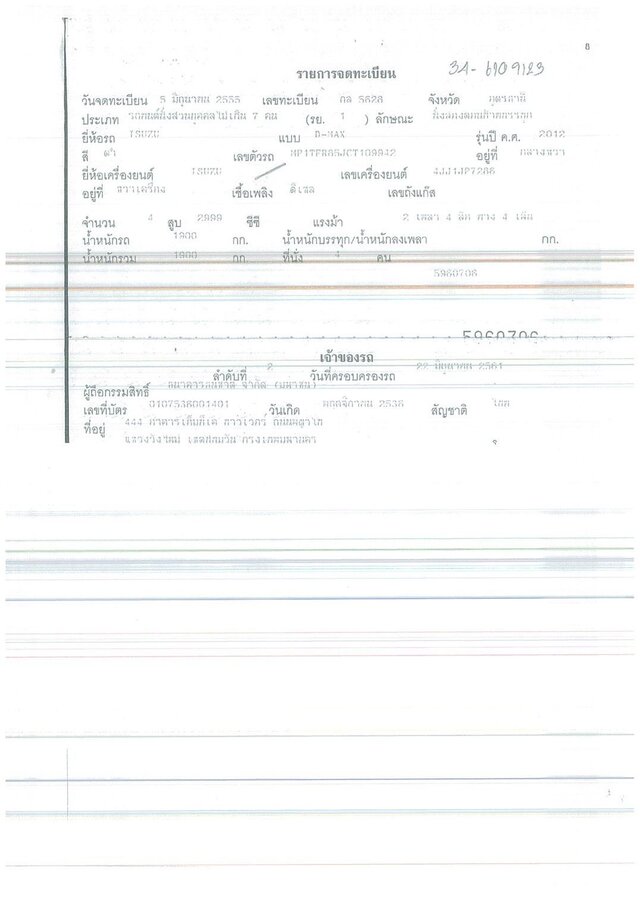 8
รายการจดทะเบียน 34-6909123
วันจดทะเบียน 5 มีนาคม 2555 เลขทะเบียน กล 5628 จังหวัด อุดรธานี
ประเภท รถยนต์นั่งส่วนบุคคลไม่เกิน 7 คน (รย. 1 ) ลักษณะ
ยี่ห้อรถ ISUZU แบบ D-MAX รุ่นปี ค.ศ. 2012
สี ดำ เลขตัวรถ MP1TFR85JCT109942 อยู่ที่ กลางขวา
ยี่ห้อเครื่องยนต์ ISUZU เลขเครื่องยนต์ 4JJ1JP7286
อยู่ที่ ขวาเครื่อง เชื้อเพลิง ดีเซล เลขถังแก๊ส
จำนวน 4 สูบ 2999 ซีซี แรงม้า 2 เพลา 4 ล้อ ยาง 4 เส้น
น้ำหนักรถ 1900 กก. น้ำหนักบรรทุก/น้ำหนักลงเพลา กก.
น้ำหนักรวม 1900 กก. ที่นั่ง 4 คน
5960706
5960706
เจ้าของรถ
ลำดับที่ 2 วันที่ครอบครองรถ 22 มิถุนายน 2561
ผู้ถือกรรมสิทธิ์ ธนาคารธนชาต จำกัด (มหาชน)
เลขที่บัตร 0107536001401 วันเกิด พฤศจิกายน 2536 สัญชาติ ไทย
ที่อยู่ 444 อาคารเอ็มบีเค ทาวเวอร์ ถนนพญาไท
แขวงวังใหม่ เขตปทุมวัน กรุงเทพมหานคร